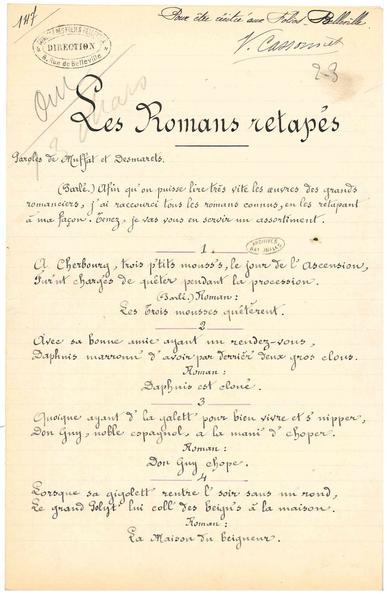 1117
Pour être visée aux Folies Belleville.
DIRECTION
8, Rue de Belleville
V. Cassonnet
2-3
Oui
Les Romans retapés
Paroles de Muffat et Desmarets.
(Parlé.) Afin qu'on puisse lire très vite les œuvres des grands
romanciers, j'ai raccourci tous les romans connus, en les retapant
à ma façon. Tenez, je vas vous en servir un assortiment.
ARCHIVES
NATIONALES
1
A Cherbourg, trois p'tits mouss's, le jour de l'Ascension,
Fur'nt chargés de quêter pendant la procession.
(Parlé.) Roman:
Les Trois mousses quêtèrent.
2
Avec sa bonne amie ayant un rendez-vous,
Daphnis marronn' d'avoir par derrièr' deux gros clous.
Roman:
Daphnis est cloué.
3
Quoique ayant d'la galett' pour bien vivre et s'nipper,
Don Guy, noble espagnol, a la mani' d'choper.
Roman:
Don Guy chope.
4
Lorsque sa gigolett' rentre l'soir sans un rond,
Le grand Polyt' lui coll' des beign's à la maison.
Roman:
La Maison du beigneur.